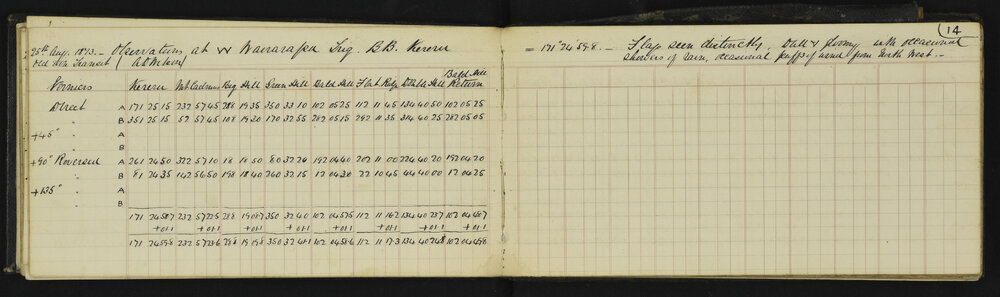 14
25th Aug. 1873.- Observations at W Wairarapa Trig. B.B. Kereru
= 171° 24' 59.8 - Flag seen distinctly. Dull & gloomy with occasional
Old 5in Transit (
showers of rain, occasional puffs of wind from North West.-
Bald Hill
Verniers Kereru Mt Cadmus Big Hill Green Hill Bald Hill Flat Ridge Double Hill Return
Direct A 171 25 15 232 57 45 288 19 35 350 33 10 102 05 25 112 11 45 134 40 50 102 05 25
" B 351 25 15 52 57 45 108 19 20 170 32 55 282 05 15 292 11 35 314 40 25 282 05 05
+45° A
" B
+90° Reversed A 261 24 50 322 57 10 18 18 50 80 32 24 192 04 40 202 11 00 224 40 20 192 04 20
" B 81 24 35 142 56 50 198 18 40 260 32 15 12 04 30 22 10 45 44 40 00 12 04 25
+135° A
" B
171 24 58.7 232 57 22.5 288 19 08.7 350 32 40 102 04 57.5 112 11 16.2 134 40 23.7 102 04 48.7
+01.1 +01.1 +01.1 +01.1 +01.1 +01.1 +01.1 +01.1
171 24 59.8 232 57 23.6 288 19 19.8 350 32 41.1 102 04 58.6 112 11 17.3 134 40 24.8 102 04 49.8